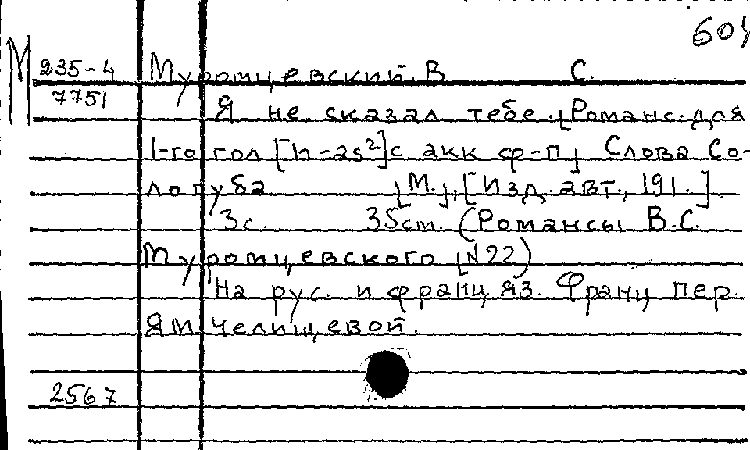 604
М
235-4 Муромцевский. В. С.
7751
Я не сказал тебе [Романс. для
1-го гол [h-as²] с акк ф-п] Слова Со-
логуба [М.], [Изд. авт., 191.]
3 с. 35 cm. (Романсы В.С.
Муромцевского [N22)
На рус. и франц яз. Франц пер.
Ям Челищевой.
2567